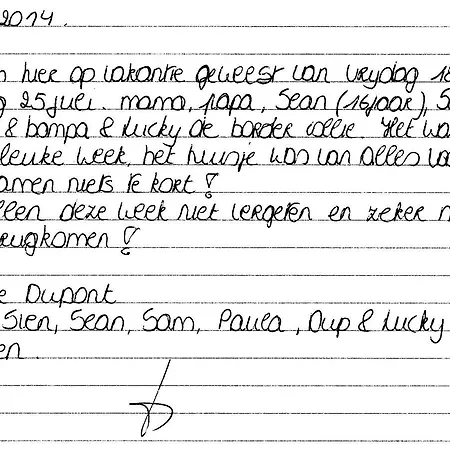 2014.
n hier op vakantie geweest van vrijdag 18
g 25 juli. mama, papa, Sean (16jaar), S
& bompa & Lucky de border collie. Het wa
leuke week, het huisje was van alles vo
amen niets te kort!
llen deze week niet vergeten en zeker n
rugkomen!
e Dupont
Sien, Sean, Sam, Paula, Dup & Lucky
en.